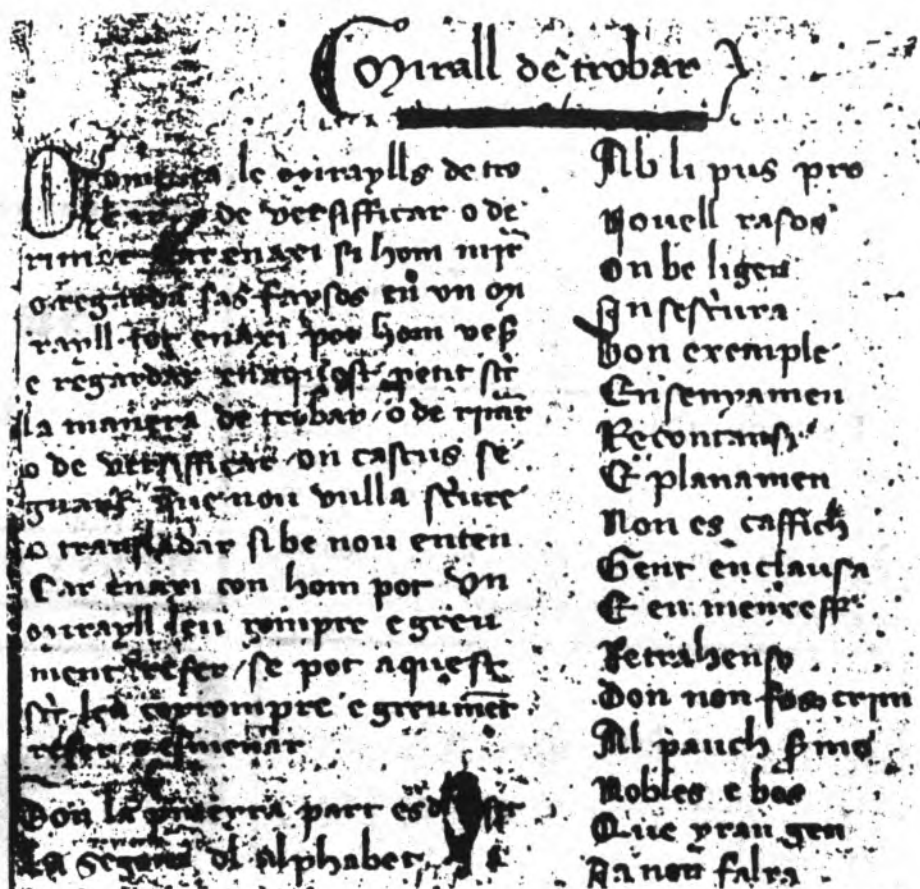 Mirall de trobar
Comensa le miraylls de tro
bar o de versifficar o de
rimar Car enaxi si hom mir
o regarda sas faysos en vn mi
rayll tot enaxi pot hom veser
e regardar en aquest petit
la manera de trobar o de rimar
o de versifficar on cascus se
guart que nou vulla
o transladar si be nou enten
Car enaxi con hom pot vn
mirayll leu rompre e greu
ment refer se pot aquest
leu corrompre e greument
refer o esmenar
Don la primeyra part es
la segona del alphabet
Ab li pus pro
Nouell rasos
On be ligen
En
Bon exemple
Ensenyamen
Recontansi
E planamen
Non es caffich
Gent enclausa
E en
Retrahenso
Don non fos crim
Al pauch
Nobles e bos
Que yran gen
Ia non falra